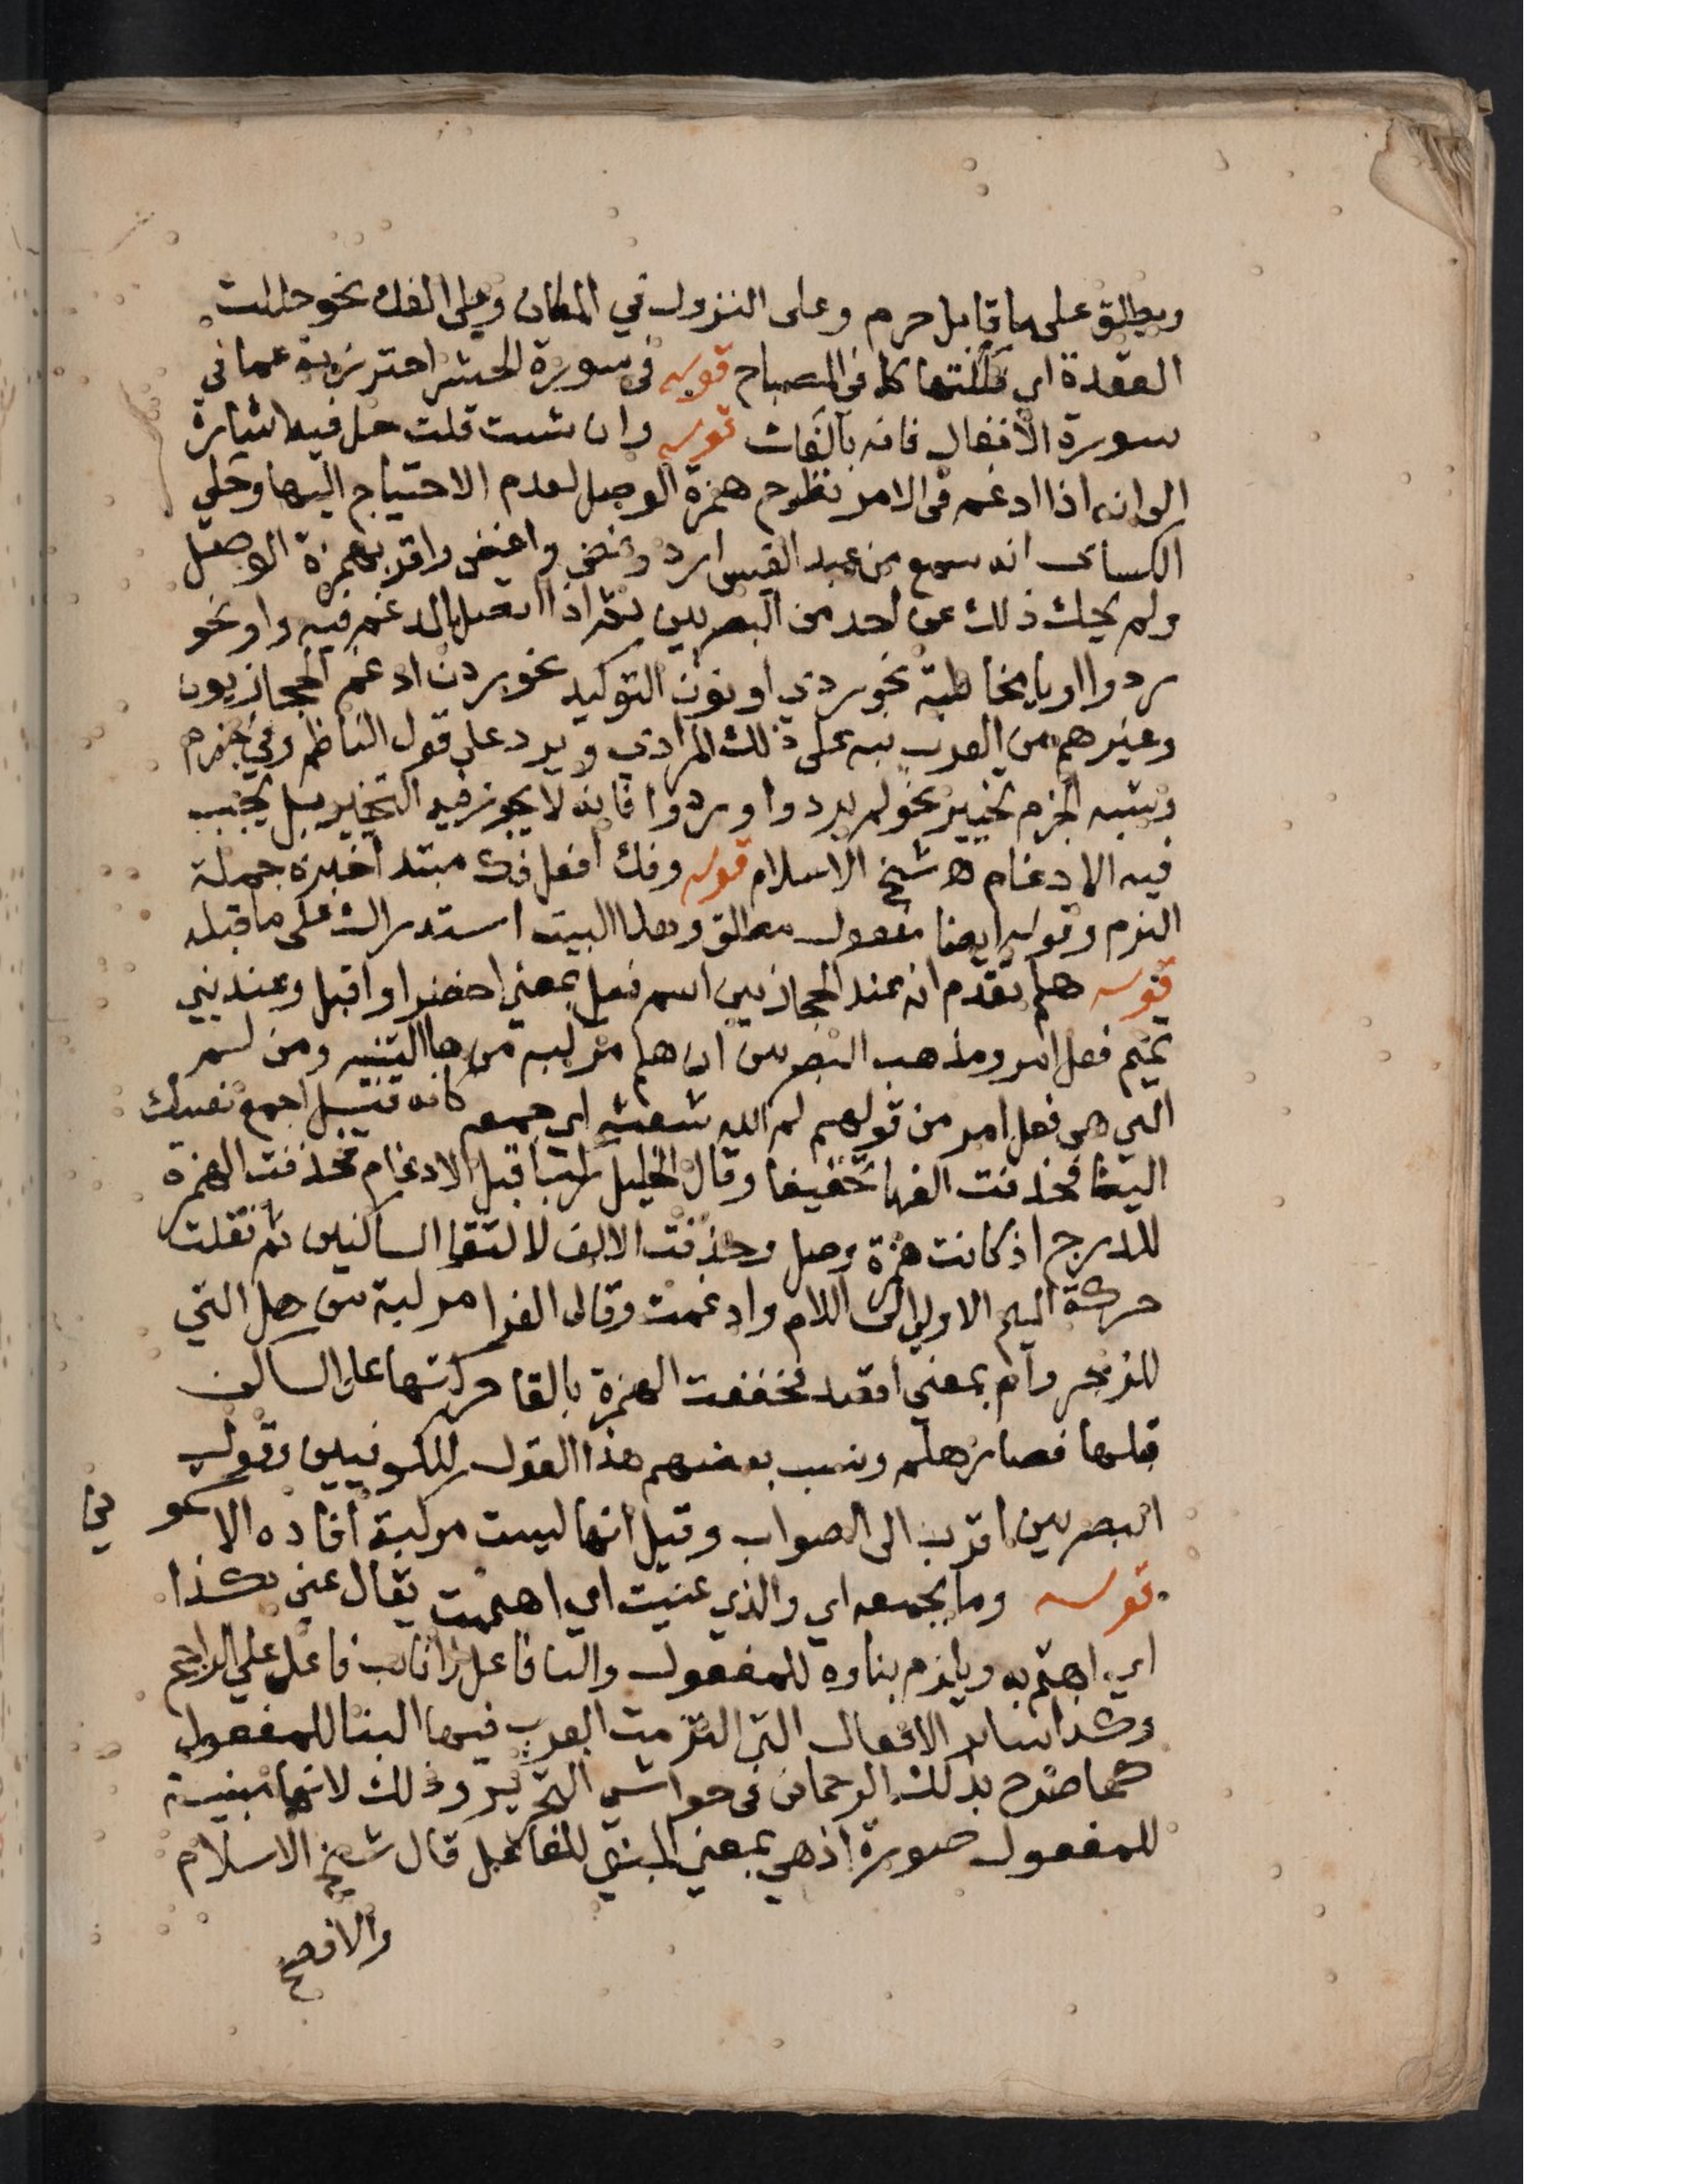 ويطلق على ما قابل حرم وعلى النزول في المكان وعلى الفك نحو حللت
العقدة اي فككتها كما في المصباح قوله في سورة الحشر احترز به عما في
سورة الانفال فانه بالفك قوله وان شئت قلت حل فيه اشارة
الى انه اذا ادغم في الامر تطرح همزة الوصل لعدم الاحتياج اليها وحكى
الكساى انه سمع من عبد القيس ارد واغض واقر بهمزة الوصل
ولم يحك ذلك عن احد من البصريين نعم اذا اتصل بالمدغم فيه واو نحو
ردوا او يا مخاطبة نحو ردي او نون التوكيد نحو ردن ادغم الحجازيون
وغيرهم من العرب نبه على ذلك المرادي ويرد على قول الناظم وفي جزم
وشبه الجزم تخيير نحو لم يردوا وردوا فانه لا يجوز فيه التخيير بل يجب
فيه الادغام اه شيخ الاسلام قوله وفك افعل فك مبتدا خبره جملة
التزم وقوله ايضا مفعول مطلق وهذا البيت استدراك على ما قبله
قوله هلم تقدم انه عند الحجازيين اسم فعل بمعنى احضر او اقبل وعند بني
تميم فعل امر ومذهب البصريين ان هلم مركبه من ها التنبيه ومن لم
التي هي فعل امر من قولهم لم الله شعثه اي جمعه كانه قيل اجمع نفسك
الينا فحذفت الفها تخفيفا وقال الخليل ركبا قبل الادغام فحذفت الهمزة
للدرج اذ كانت همزة وصل وحذفت الالف لالتقا الساكنين ثم نقلت
حركة الميم الاولى الى اللام وادغمت وقال الفرا مركبة من هل التي
للزجر وام بمعنى اقصد فخففت الهمزة بالقا حركتها على الساكن
قبلها فصار هلم ونسب بعضهم هذا القول للكوفيين وقول
البصريين اقرب الى الصواب وقيل انها ليست مركبة افاده الاشمو ني
قوله وما بجمعه اي والذي عنيت اي اهممت يقال عني بكذا
اي اهتم به ويلزم بناوه للمفعول والتا فاعل او نائب فاعل على الراجح
وكذا سائر الافعال التي التزمت العرب فيها البنا للمفعول
كما صرح بذلك الرحماني في حواشي التحرير وذلك لانها مبنية
للمفعول صورة اذ هي بمعنى المبني للفاعل قال شيخ الاسلام
والافصح